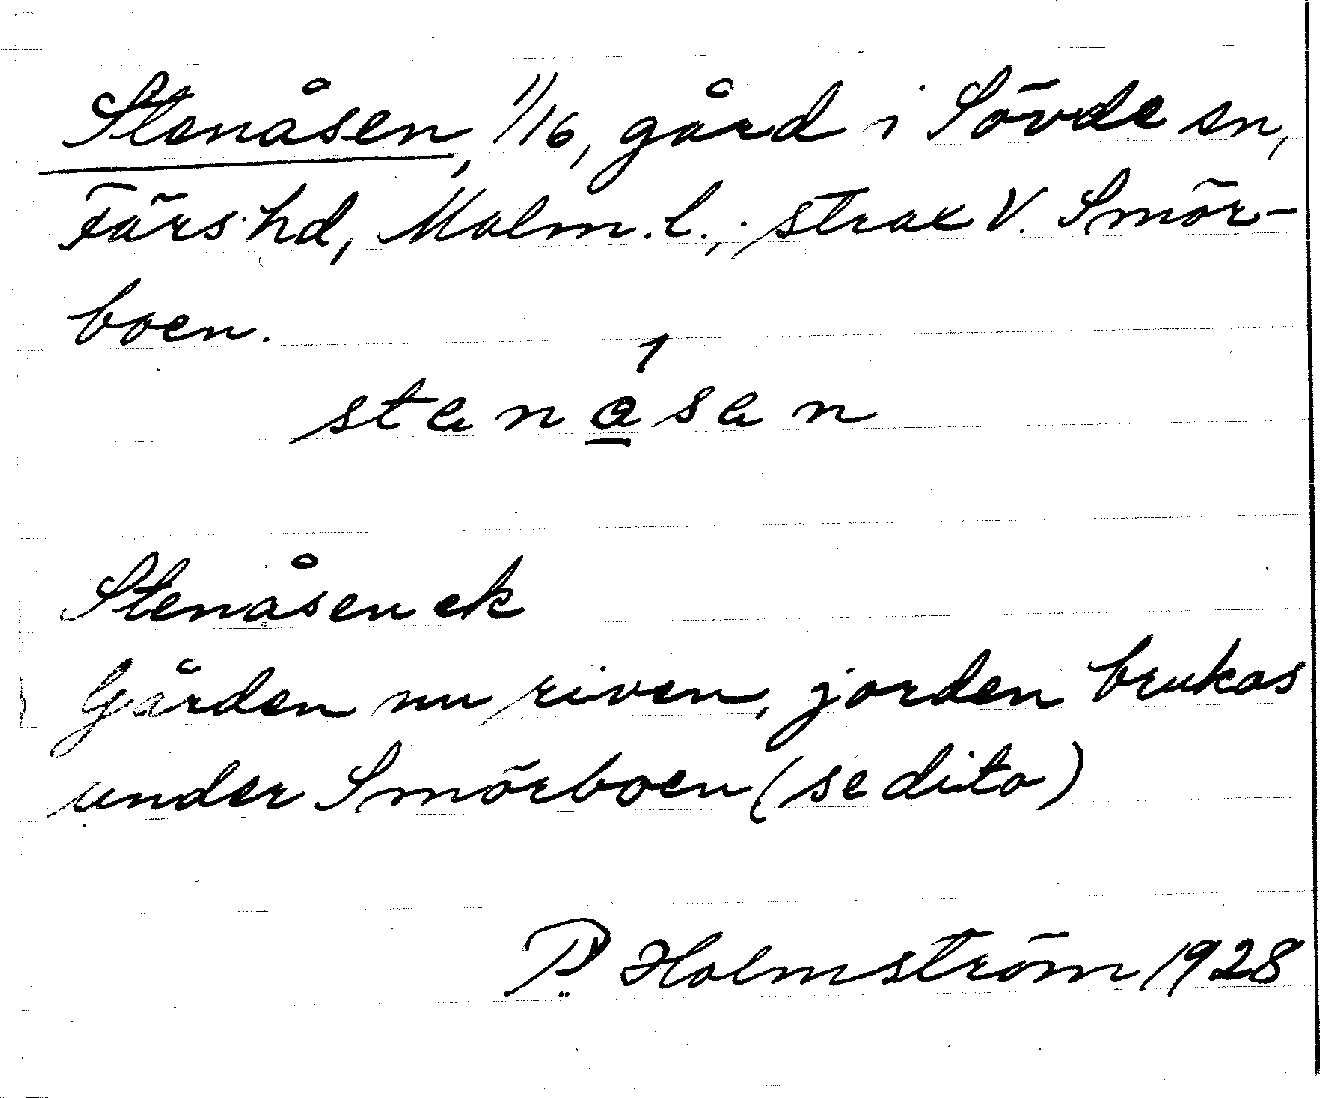 Stenåsen, 1/16, gård i Sövde sn,
Färs hd, Malm. l., strax V. Smör-
boen.
stenåsen
Stenåsen ek
Gården nu riven, jorden brukas
under Smörboen (se dito)
P. Holmström 1928